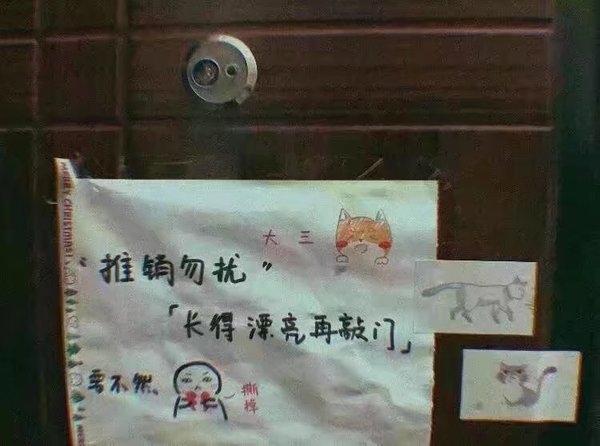 MERRY CHRISTMAS!
大三
“推销勿扰”
「长得漂亮再敲门」
要不然、
撕掉